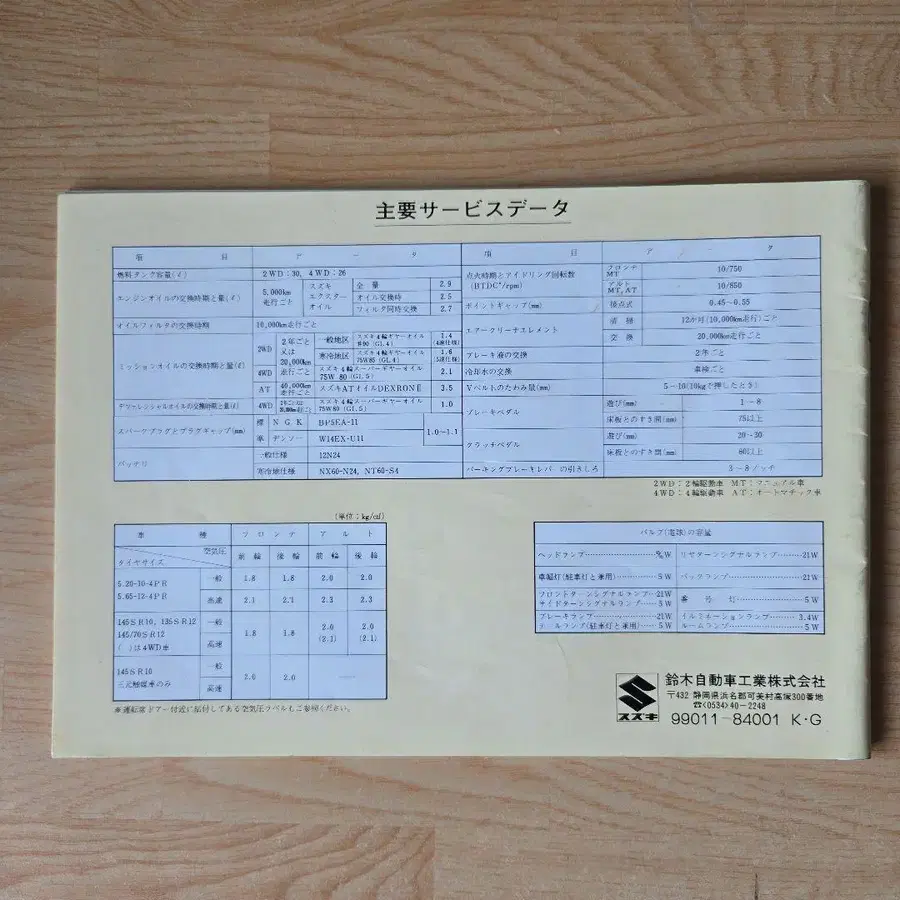 主要サービスデータ
項 目 デ ー タ
燃料タンク容量(ℓ) 2WD:30, 4WD:26
エンジンオイルの交換時期と量(ℓ) 5,000km走行ごと スズキエクスターオイル 全量 2.9
オイル交換時 2.5
フィルタ同時交換 2.7
オイルフィルタの交換時期 10,000km走行ごと
ミッションオイルの交換時期と量(ℓ) 2WD 2年ごと又は20,000km走行ごと 一般地区 スズキ4輪ギヤーオイル #90 (GL.4) 1.4 (4速仕様)
寒冷地区 スズキ4輪ギヤーオイル 75W/85 (GL.4) 1.6 (5速仕様)
4WD スズキ4輪スーパーギヤーオイル 75W/80 (GL.5) 2.1
AT 40,000km走行ごと スズキATオイルDEXRONⅡ 3.5
デファレンシャルオイルの交換時期と量(ℓ) 4WD スズキ4輪スーパーギヤーオイル 75W/80 (GL.5) 1.0
スパークプラグとプラグギャップ(mm) 標準 NGK BP5EA-11 1.0~1.1
デンソー W14EX-U11
バッテリ 一般仕様 12N24
寒冷地仕様 NX60-N24, NT60-S4
項 目 デ ー タ
点火時期とアイドリング回転数(BTDC°/rpm) フロンテ MT 10/750
アルト MT,AT 10/850
ポイントギャップ(mm) 接点式 0.45~0.55
エアークリーナエレメント 清掃 12か月(10,000km走行)ごと
交換 20,000km走行ごと
ブレーキ液の交換 2年ごと
冷却水の交換 車検ごと
Vベルトのたわみ量(mm) 5~10(10kgで押したとき)
ブレーキペダル 遊び(mm) 1~8
床板とのすき間(mm) 75以上
クラッチペダル 遊び(mm) 20~30
床板とのすき間(mm) 60以上
パーキングブレーキレバーの引きしろ 3~8ノッチ
2WD:2輪駆動車 MT:マニュアル車
4WD:4輪駆動車 AT:オートマチック車
(単位:kg/cm²)
車 種 フロンテ アルト
タイヤサイズ 空気圧 前輪 後輪 前輪 後輪
5.20-10-4PR 一般 1.8 1.8 2.0 2.0
5.65-12-4PR 高速 2.1 2.1 2.3 2.3
145SR10, 135SR12 一般
145/70SR12 1.8 1.8 2.0 (2.1) 2.0 (2.1)
( )は4WD車 高速
145SR10 一般
三元触媒車のみ 高速 2.0 2.0
※運転席ドアー付近に貼付してある空気圧ラベルもご参照ください。
バルブ(電球)の容量
ヘッドランプ リヤターンシグナルランプ 21W
車幅灯(駐車灯と兼用) 5W バックランプ 21W
フロントターンシグナルランプ 21W 番号灯 5W
サイドターンシグナルランプ 5W
ブレーキランプ 21W イルミネーションランプ 3.4W
テールランプ(駐車灯と兼用) 5W ルームランプ 5W
スズキ
鈴木自動車工業株式会社
〒432 静岡県浜名郡可美村高塚300番地
☎(0534)40-2248
99011-84001 K・G